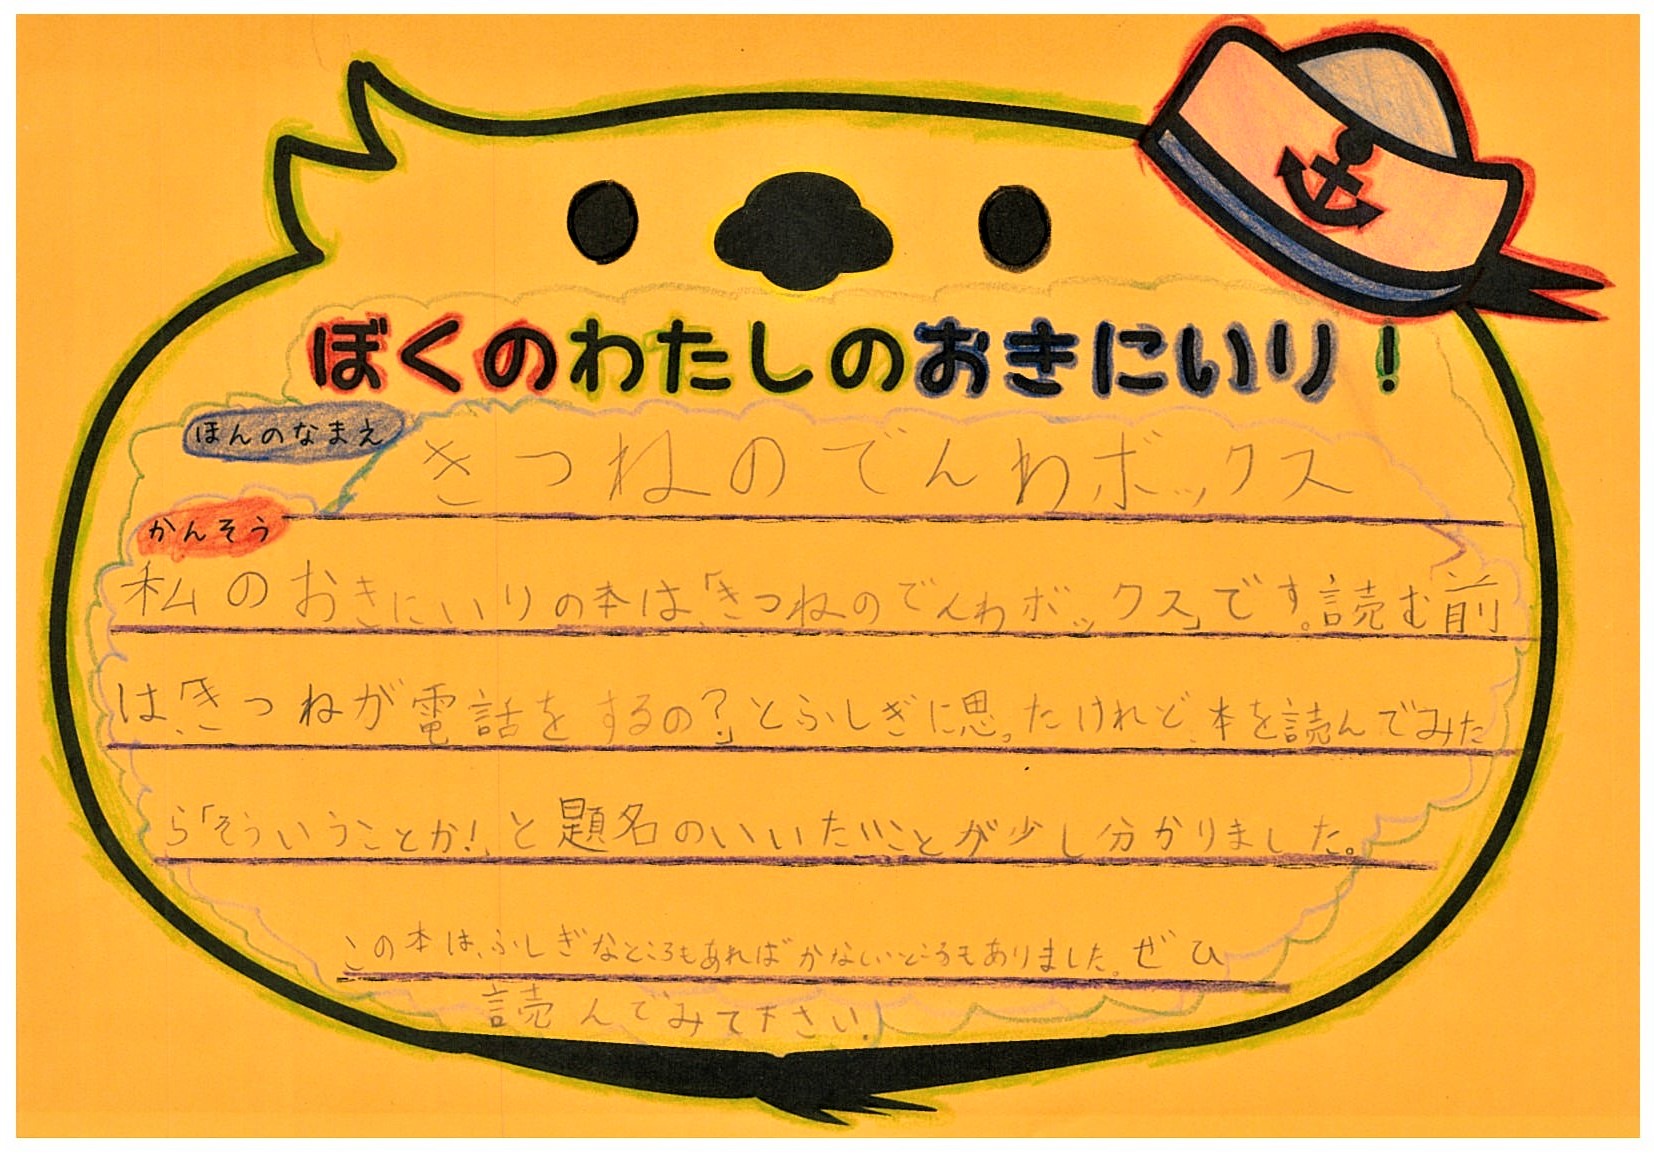 ぼくのわたしのおきにいり！
ほんのなまえ
きつねのでんわボックス
かんそう
私のおきにいりの本は、「きつねのでんわボックス」です。読む前
は、「きつねが電話をするの？」とふしぎに思ったけれど、本を読んでみた
ら「そういうことか！」と題名のいいたいことが少し分かりました。
この本は、ふしぎなところもあればかなしいところもありました。ぜひ
読んでみて下さい！